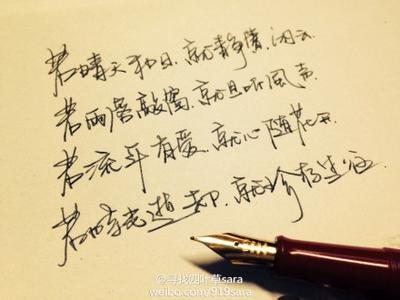 若晴天和日.就静赏闲云
若雨落敲窗.就且听風声
若流年有爱.就心随花开
若时光逝却.就珍存
@寻找四叶草sara
weibo.com/919sara